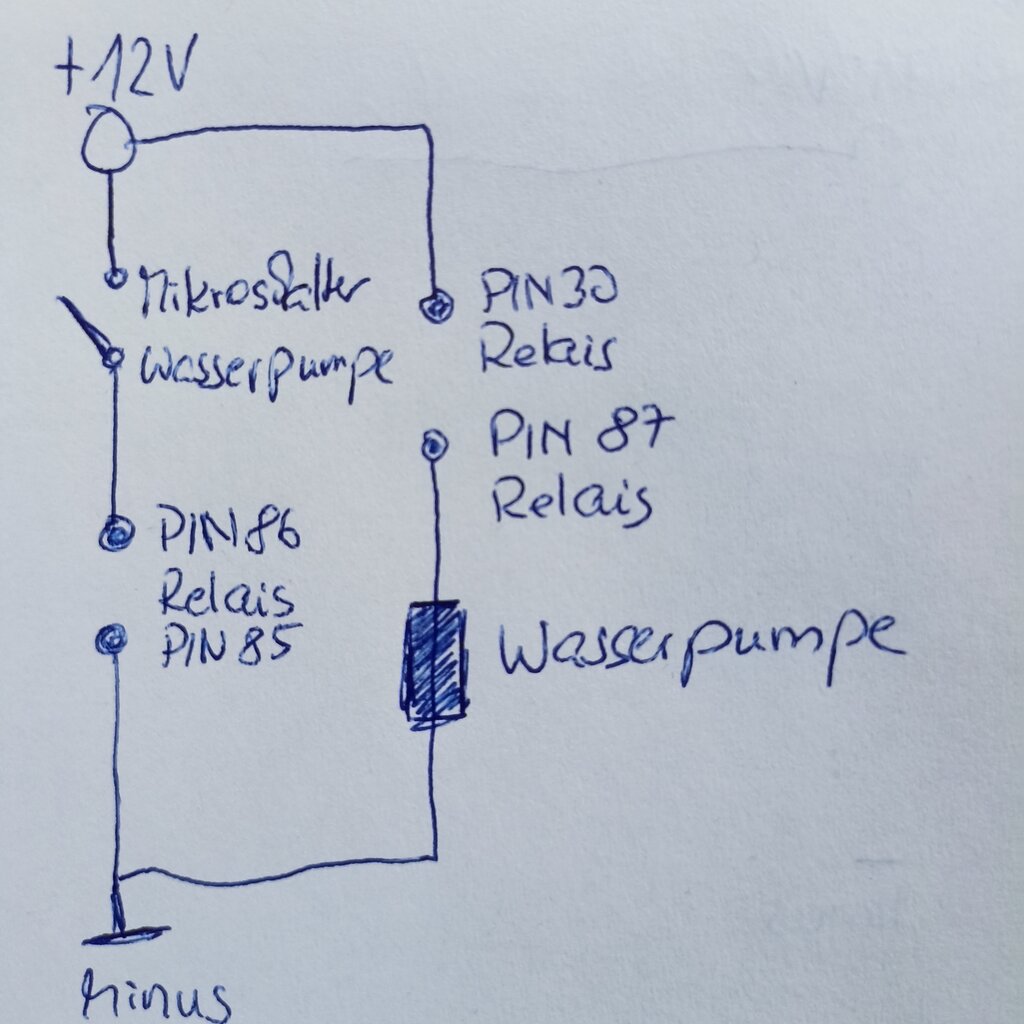 +12V
Mikroschalter
Wasserpumpe
PIN 30
Relais
PIN 87
Relais
PIN 86
Relais
PIN 85
Wasserpumpe
Minus